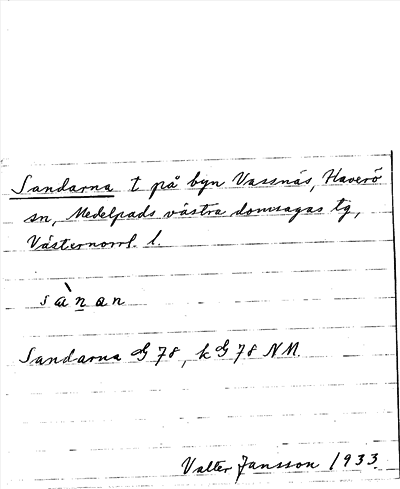 Sandarna t på byn Vassnäs, Haverö
sn, Medelpads västra domsagas tg,
Västernorrl. l.
sànan
Sandarna G 78, k G 78 NM.
Valter Jansson 1933